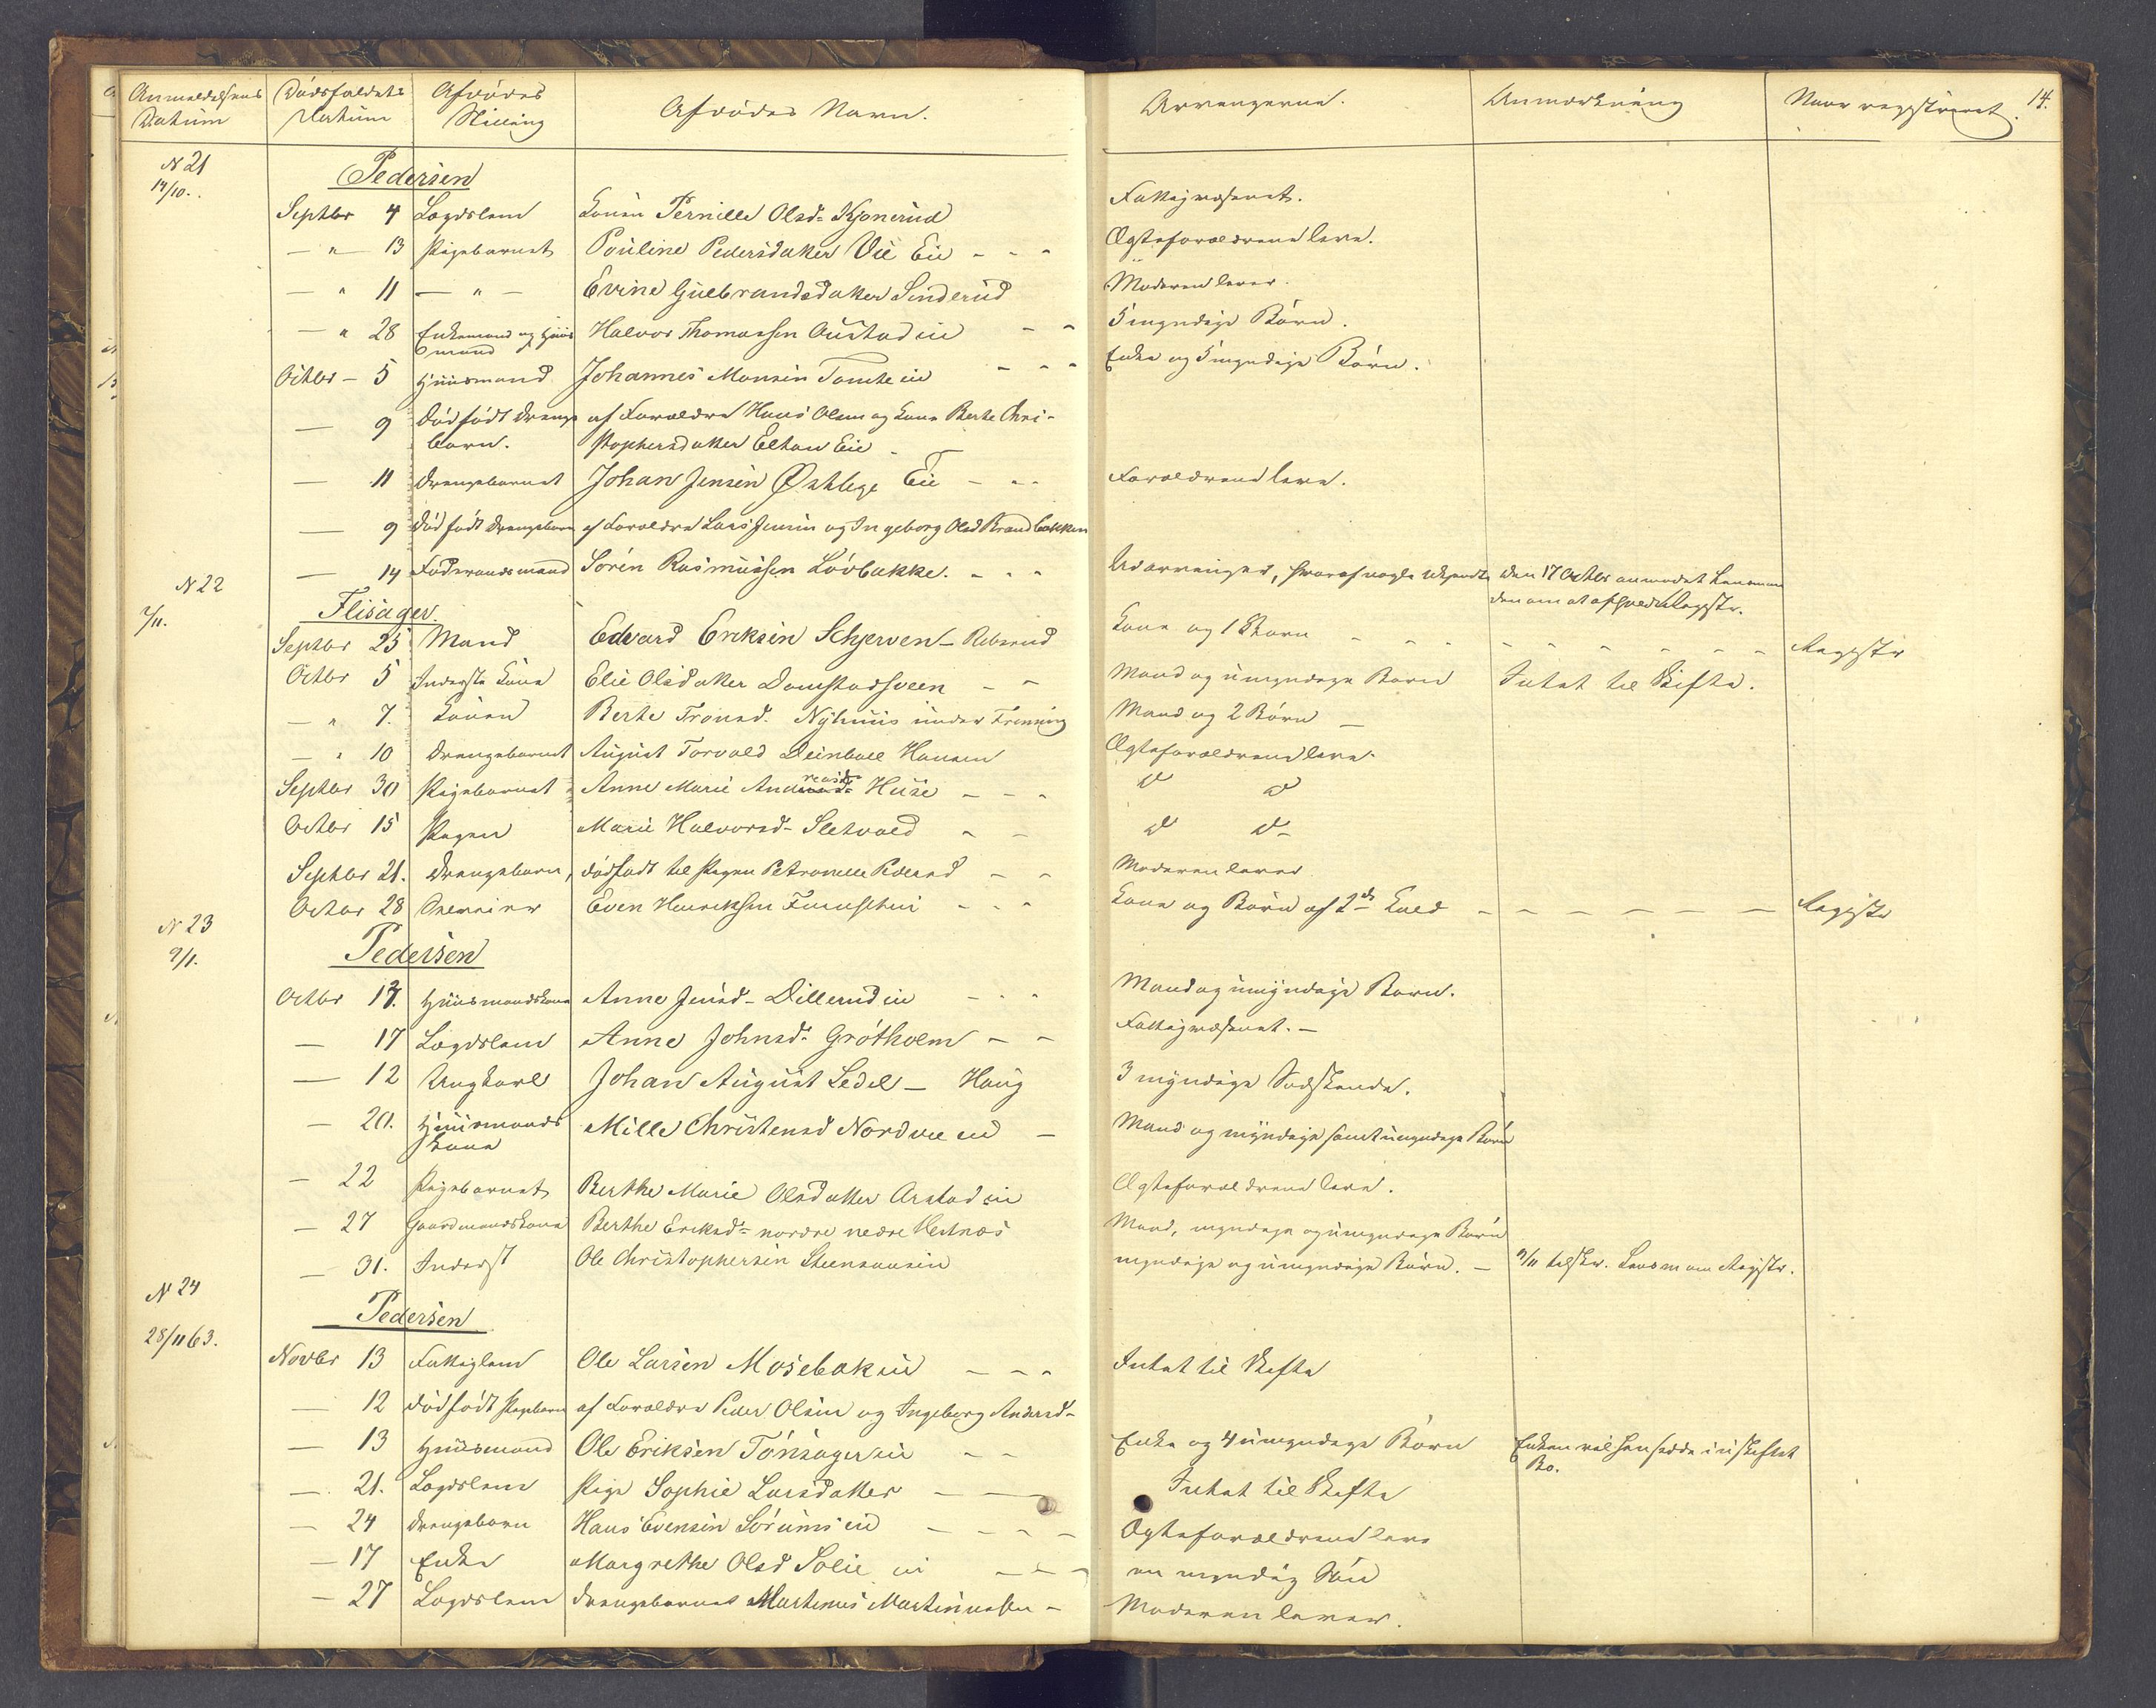 Anmeldelsens Datum | Dødsfaldets Datum | Afdødes Stilling | Afdødes Navn. | Arvingerne. | Anmærkning | Naar registreret. | 14.
N 21
14/10.
Pedersen
Septbr 4 | Lægdslem | Konen Pernille Olsd= Kjonerud | Fattigvæsenet.
— " — 13 | Pigebarnet | Pouline Pedersdatter Vie Eie - - - | Ægteforældrene leve.
— " 11 | — " — | Evine Gulbrandsdatter Sinderud | Moderen lever.
— " 28 | Enkemand og Huusmand | Halvor Thomassen Austad eie - - | 5 myndige Børn.
Octbr - 5 | Huusmand | Johannes Monsen Tomte eie - - - | Enke og 5 myndige Børn.
— 9 | Dødfødt Drengebarn. | af Forældre Hans Olsen og Kone Berte Christophersdatter Elton Eie
— 11 | Drengebarnet | Johan Jensen Østlege Eie - - - | Forældrene leve.
— 9 | Dødfødt Drengebarn | af Forældre Lars Jensen og Ingeborg Olsd Brandbakken
— 14 | Føderaadsmand | Søren Rasmussen Løvbakke. - - - | Udarvinger, hvoraf nogle ukjendte | Den 17 Octbr anmodet Lensmanden om at afholde Registr.
N 22
7/11.
Flisager.
Septbr 25 | Mand | Edvard Eriksen Schjerven - Rebneud | Kone og 1 Barn - - - | - - - - - - | Registr
Octbr 5 | Inderste Kone | Elie Olsdatter Domstadsveen - - | Mand og umyndige Børn | Intet til Skifte.
— " 7. | Konen | Berte Tronsd. Nyhuus under Frenning | Mand og 2 Børn —
— " 10 | Drengebarnet | August Torvald Deinboll Hansen | Ægteforældrene leve.
Septbr 30 | Pigebarnet | Anne Marie Andreasd= Huse - - - | d d
Octbr 15 | Pigen | Marie Halvorsd- Sletvold - - | d d-
Septbr 21. | Drengebarn, | dødfødt til Pigen Petronelle Pedersd - - | Moderen lever
Octbr 28 | | Even Henriksen - - - | Kone og Børn af 2de Kuld - | - - - - - | Registr
N 23
9/1.
Pedersen
Octbr 17. | Huusmandskone | Anne Jensd- Dillerud eie - - - | Mand og umyndige Børn.
— 17 | Lægdslem | Anne Johnsd- Grøtholm - - | Fattigvæsenet. —
— 12 | Ungkarl | Johan August Sedel — Haug | 3 myndige Sødskende.
— 20. | Huusmandskone | Mille Christensd Nordvie eie - | Mand og myndige samt umyndige Børn
— 22 | Pigebarnet | Berthe Marie Olsdatter Arstad eie | Ægteforældrene leve.
— 27 | Gaardmandskone | Berthe Eriksd= nordre nedre Hestnæs | Mand, myndige og umyndige Børn
— 31. | Inderst | Ole Christophersen | myndige og umyndige Børn. — | 9/11 tilskr. Lensm om Registr.
N 24
28/11 63.
Pedersen
Novbr 13 | Fattiglem | Ole Larsen Mosebak eie - - - | Intet til Skifte
— 12 | Dødfødt Pigebarn | af Forældre Peder Olsen og Ingeborg Andersd-
— 13 | Huusmand | Ole Eriksen Tønsager eie - - | Enke og 4 umyndige Børn | Enken vil hensidde i uskiftet Bo.
— 21. | Lægdslem | Pige Sophie Larsdatter - — | Intet til Skifte
— 24 | Drengebarn | Hans Evensen Sørums eie - - - - | Ægteforældrene leve
— 17 | Enke | Margrethe Olsd Solie eie - - - | en myndig Søn
— 27 | Lægdslem | Drengebarnet Martinus Martinussen - | Moderen lever.